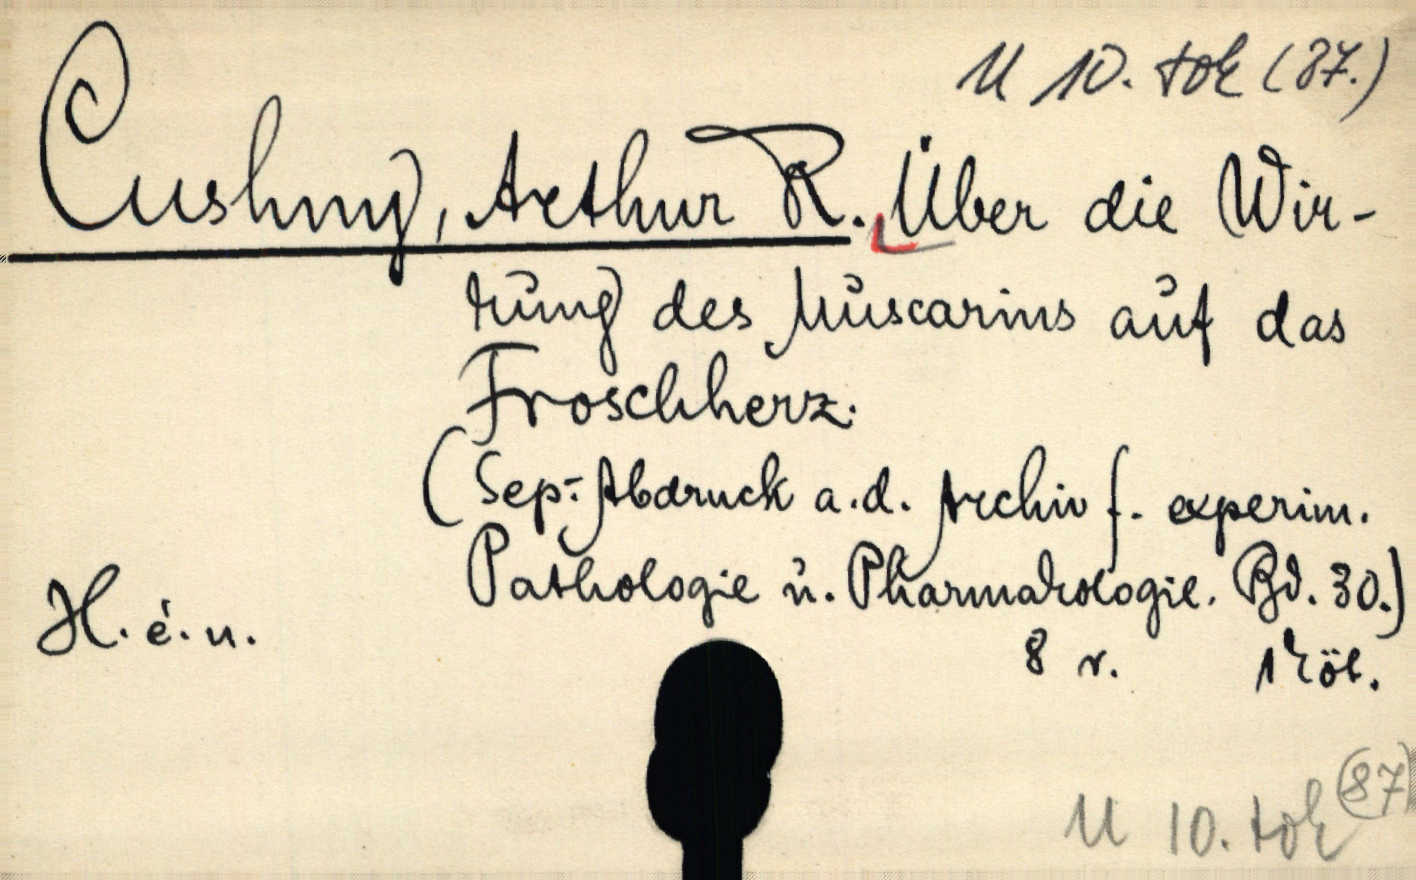 U 10. tok (87.)
Cushny, Arthur R. Über die Wir-
kung des Muscarins auf das
Froschherz.
(Sep.-Abdruck a. d. Archiv f. experim.
Pathologie u. Pharmakologie. Bd. 30.)
H. é. n.
8 r. 1 köt.
U 10. tok (87)